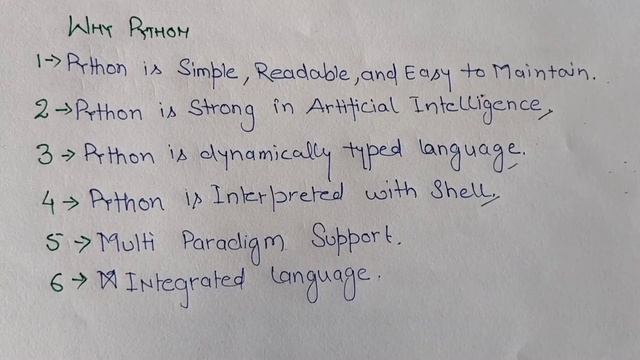 WHY PYTHON
1→ Python is Simple, Readable, and Easy to Maintain.
2→ Python is Strong in Artificial Intelligence,
3→ Python is dynamically typed language.
4→ Python is Interpreted with Shell.
5→ Multi Paradigm Support.
6→ Integrated language.